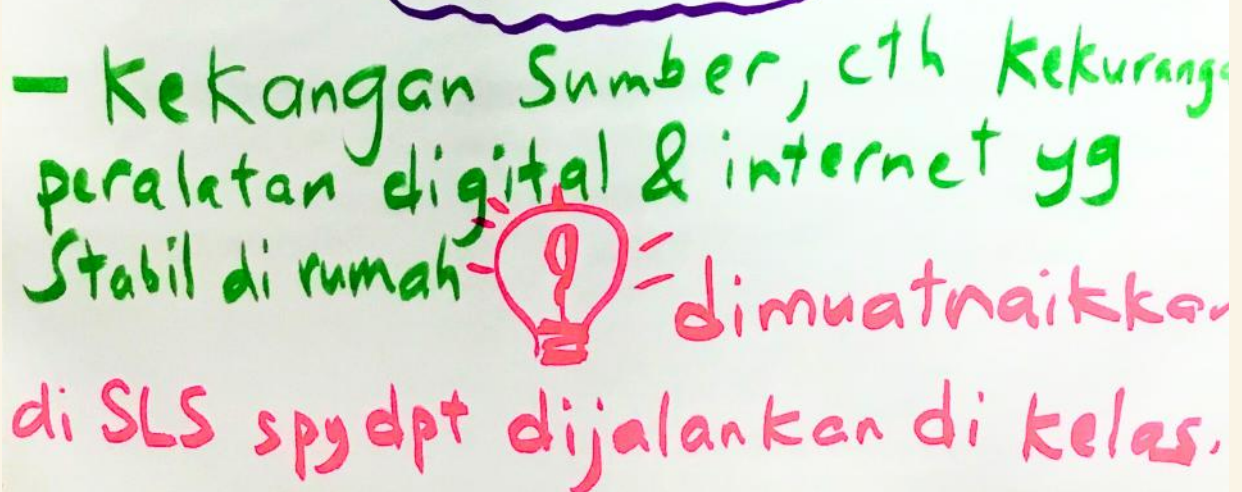 - Kekangan Sumber, cth Kekurang
peralatan digital & internet yg
Stabil di rumah
dimuatnaikkan
di SLS spy dpt dijalankan di kelas.